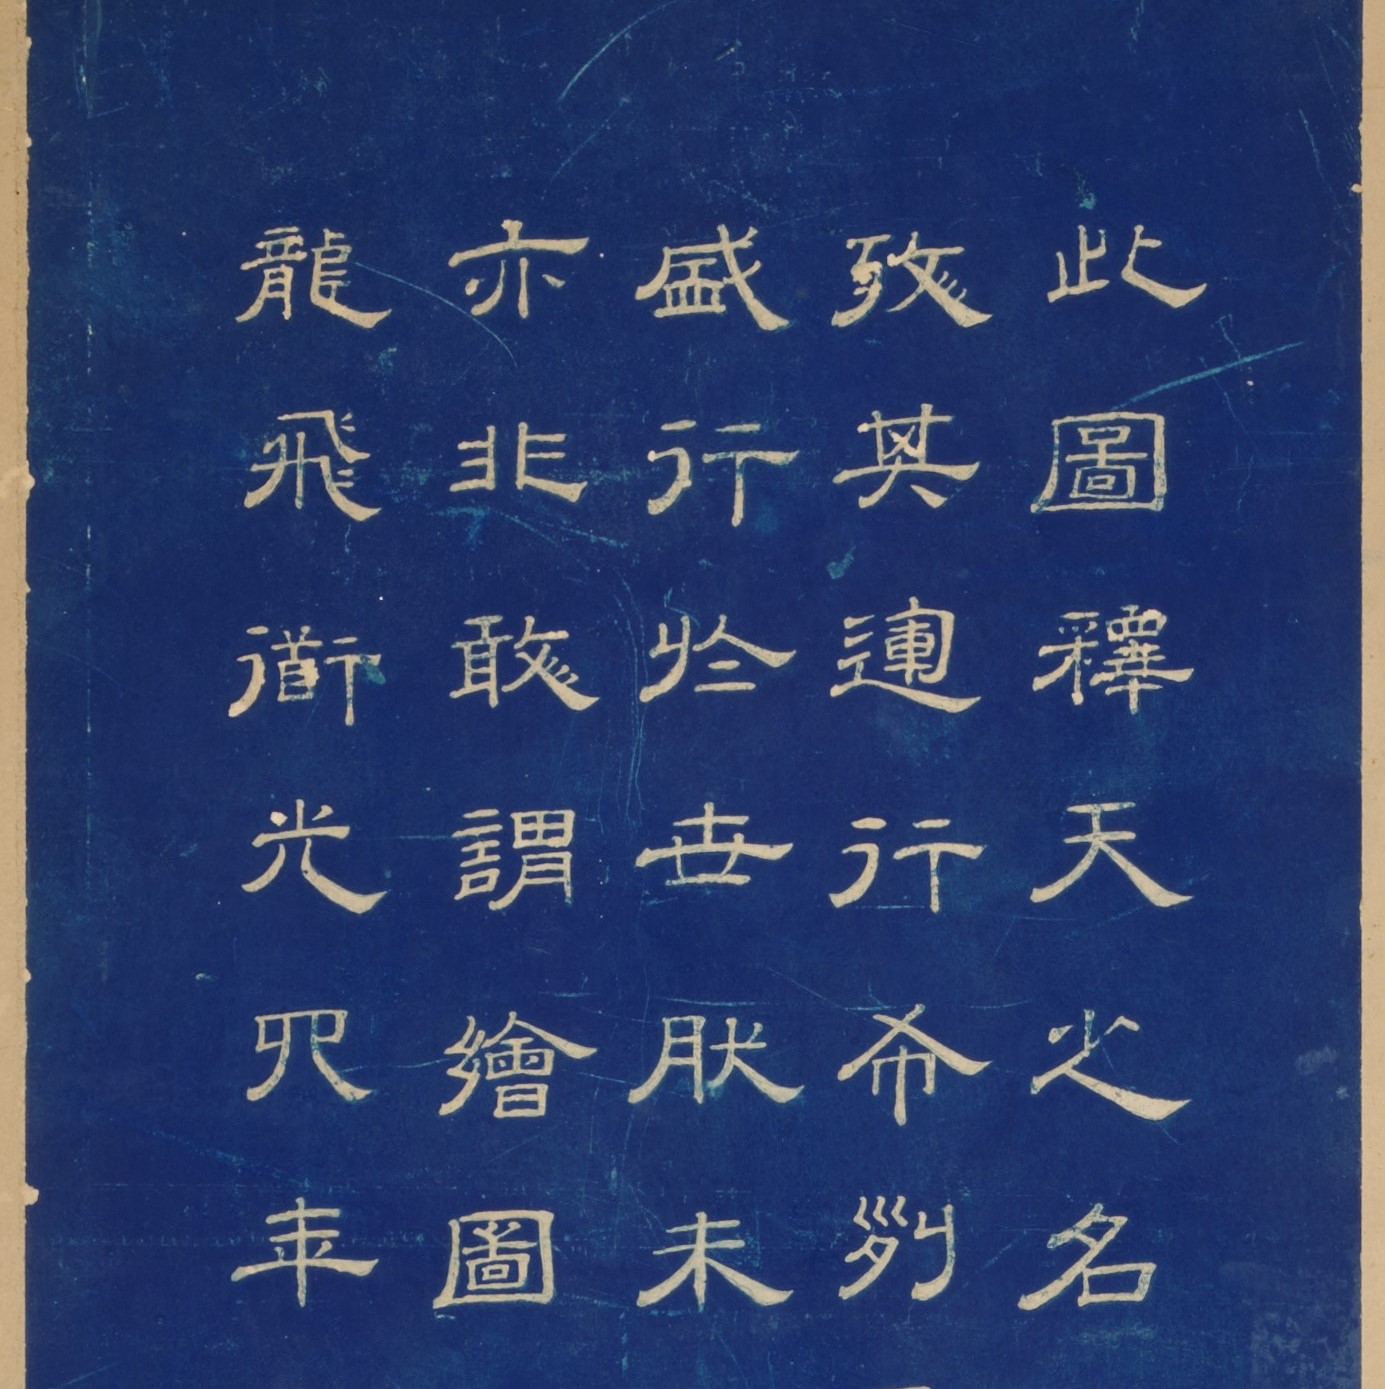 此圖釋天之名
攷其運行希列
盛行於世肰未
亦非敢謂繪圖
龍飛衟光四年